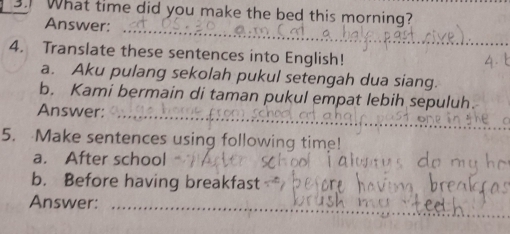 3. What time did you make the bed this morning?
Answer: at 05.30 a.m (at a half past five).
4. Translate these sentences into English!
a. Aku pulang sekolah pukul setengah dua siang.
b. Kami bermain di taman pukul empat lebih sepuluh.
Answer: a. I go home from school at a half past one in the
5. Make sentences using following time!
a. After school → After school i always do my ho
b. Before having breakfast → before having breakfas
Answer: brush my teeth